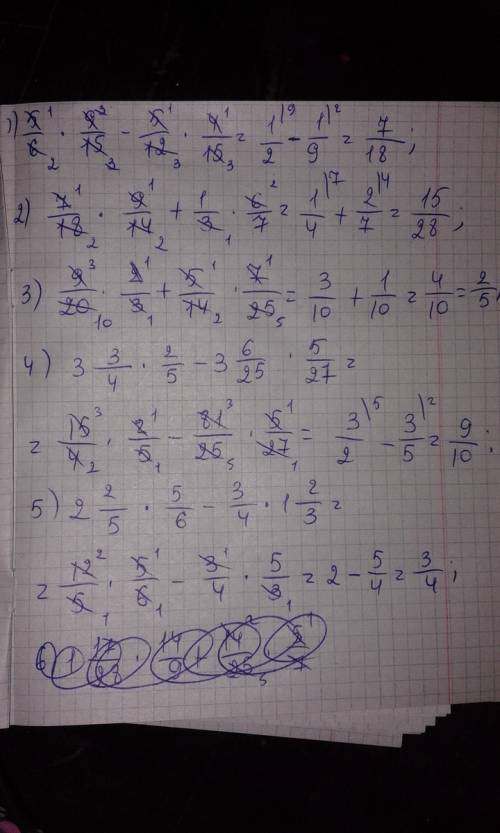 1) 5/6 · 9/15 - 5/12 · 4/15 = 1/2 - 1/9 = 7/18;
2) 7/18 · 9/14 + 1/3 · 6/7 = 1/4 + 2/7 = 15/28;
3) 9/20 · 2/3 + 5/14 · 7/25 = 3/10 + 1/10 = 4/10 = 2/5;
4) 3 3/4 · 2/5 - 3 6/25 · 5/27 =
= 15/4 · 2/5 - 81/25 · 5/27 = 3/2 - 3/5 = 9/10;
5) 2 2/5 · 5/6 - 3/4 · 1 2/3 =
= 12/5 · 5/6 - 3/4 · 5/3 = 2 - 5/4 = 3/4;